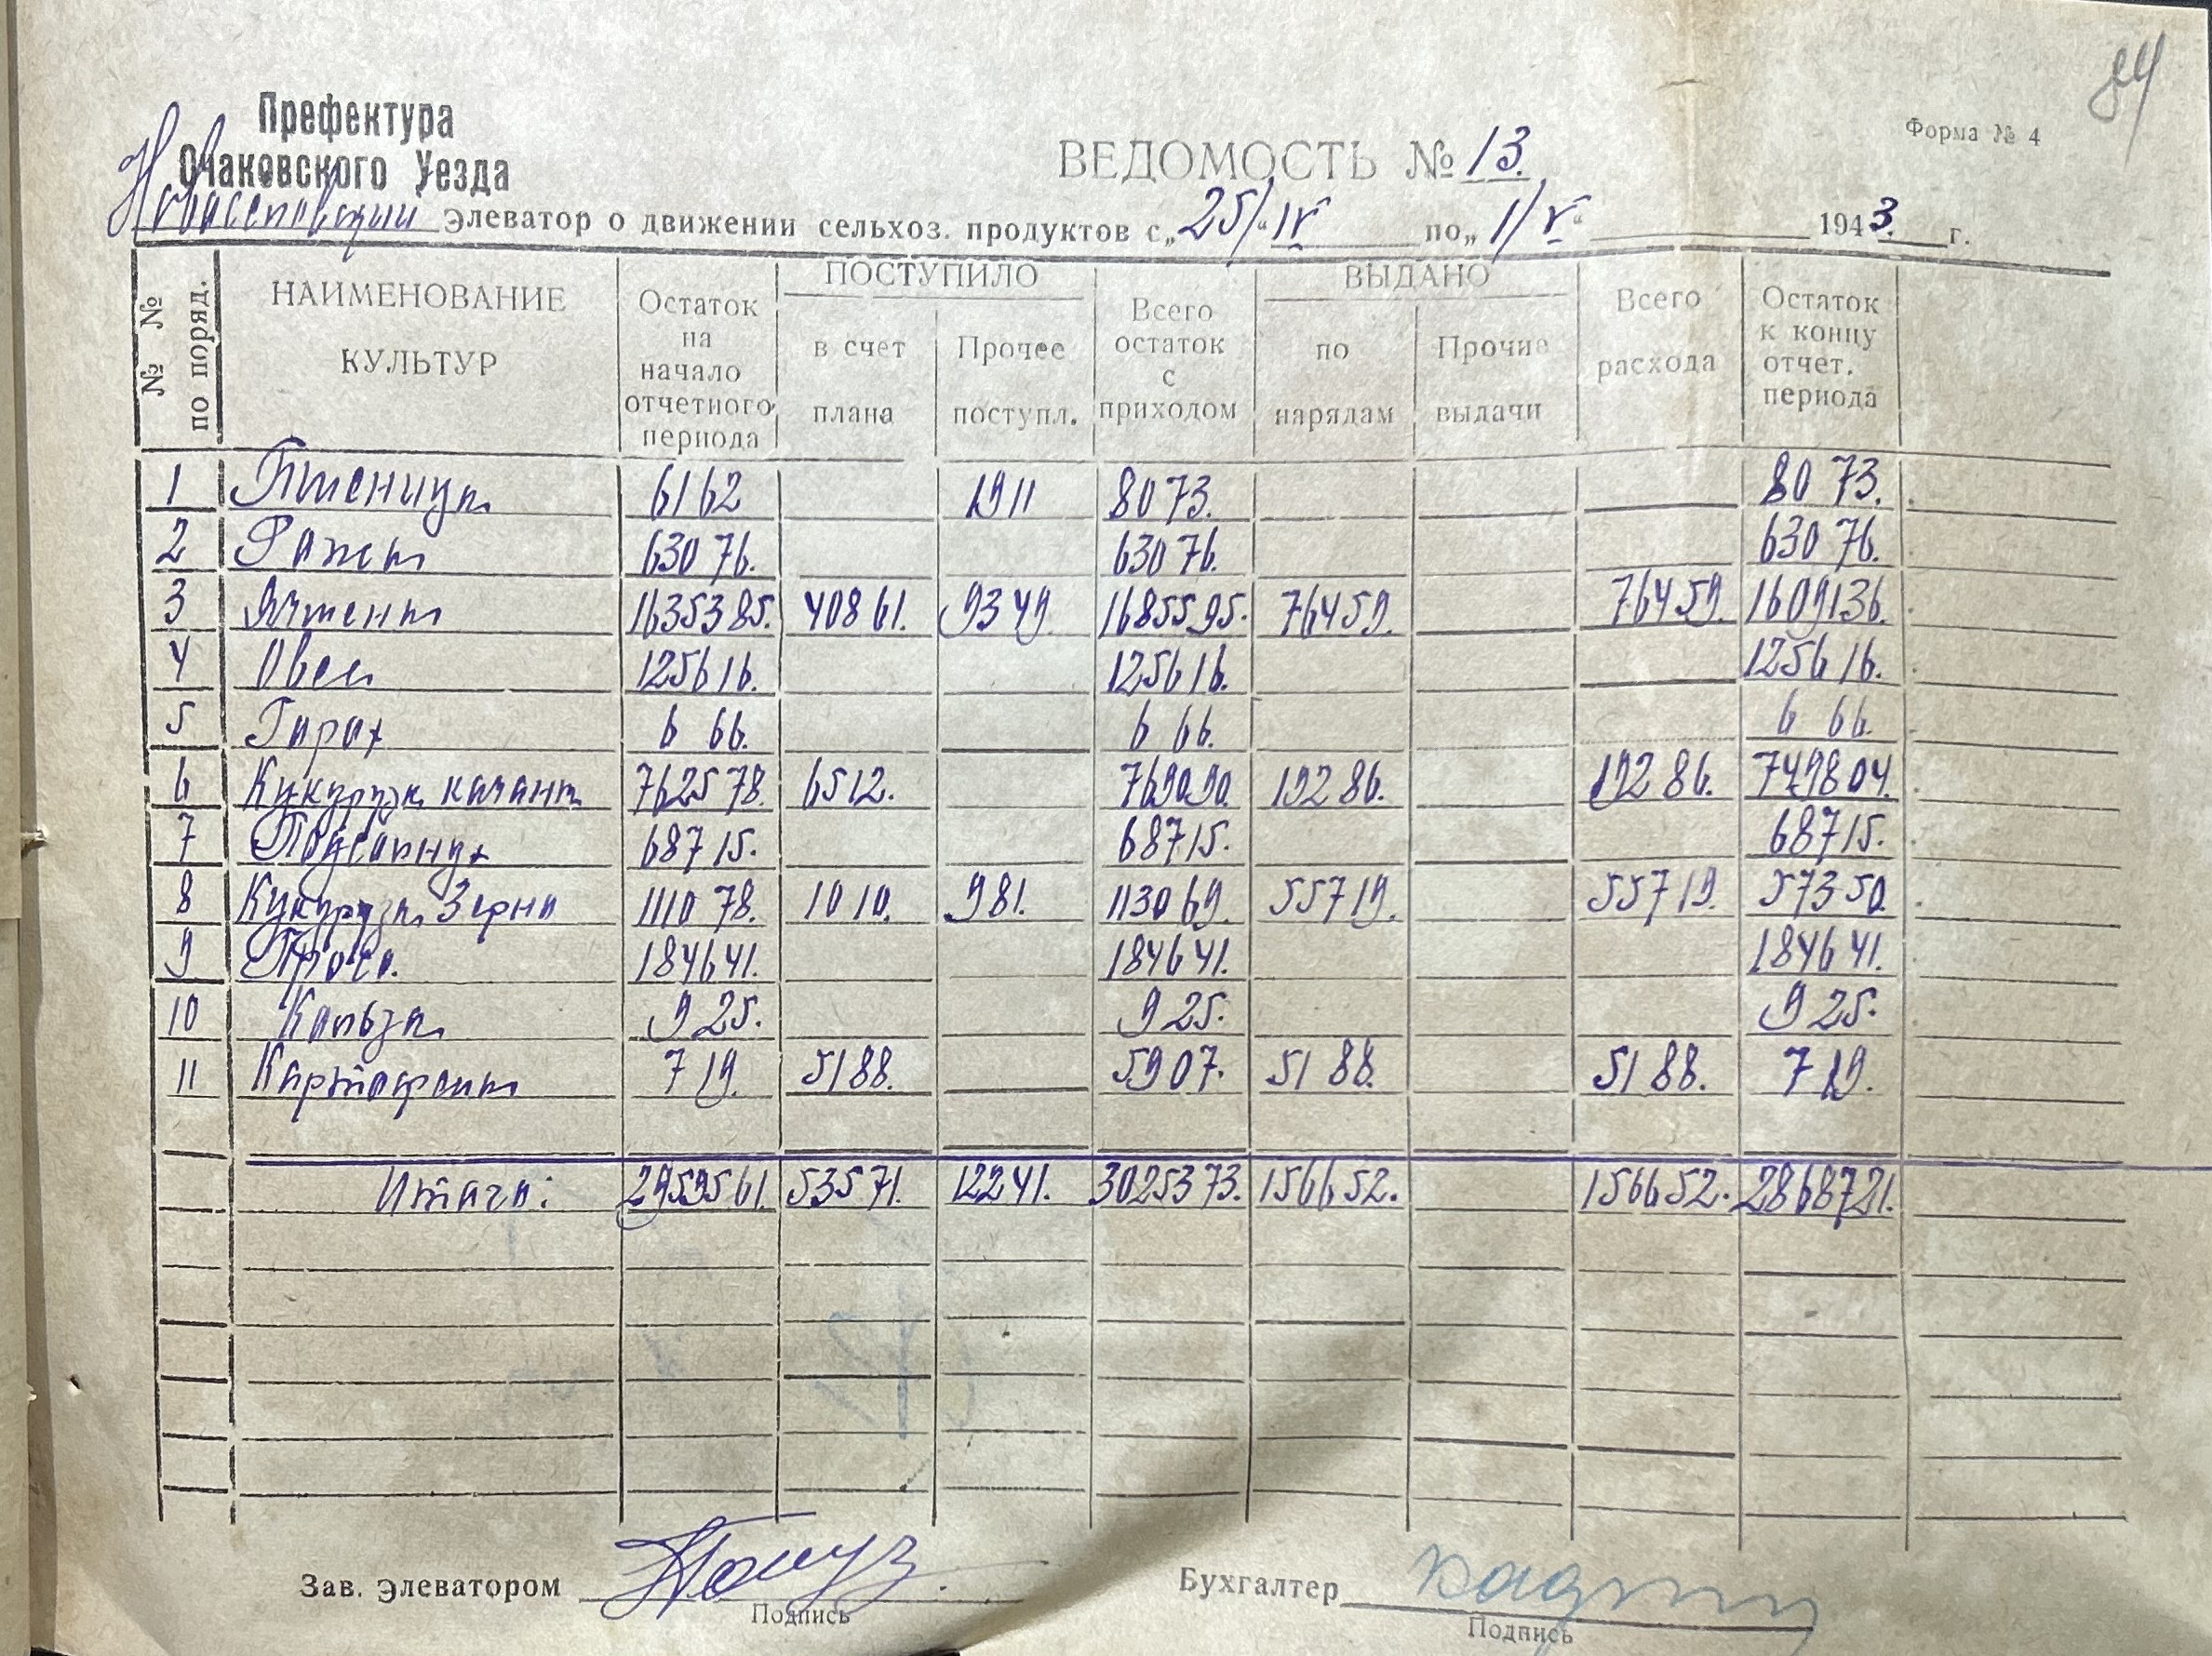 84
Префектура
Очаковского Уезда
Форма № 4
ВЕДОМОСТЬ № 13.
Элеватор о движении сельхоз. продуктов с „25/“ IV по „1/V“ 1943. г.
№ № по поряд. | НАИМЕНОВАНИЕ КУЛЬТУР | Остаток на начало отчетного периода | ПОСТУПИЛО в счет плана | Прочее поступл. | Всего остаток с приходом | ВЫДАНО по нарядам | Прочие выдачи | Всего расхода | Остаток к концу отчет. периода
1 Пшеница 6162 1911 8073. 8073.
2 Рожь 63076. 63076. 63076.
3 Ячмень 1635385. 40861. 9349. 1685595. 76459. 76459. 1609136.
4 Овес 125616. 125616. 125616.
5 Горох 666. 666. 666.
6 Кукуруза качан 762578. 6512. 769090. 19286. 19286. 749804.
7 Подсолнух 68715. 68715. 68715.
8 Кукуруза Зерно 111078. 1010. 981. 113069. 55719. 55719. 57350.
9 Просо. 184641. 184641. 184641.
10 Кольза 925. 925. 925.
11 Картофель 719. 5188. 5907. 5188. 5188. 719.
Итого: 2959561. 53571. 12241. 3025373. 156652. 156652. 2868721.
Зав. Элеватором
Подпись
Бухгалтер
Подпись